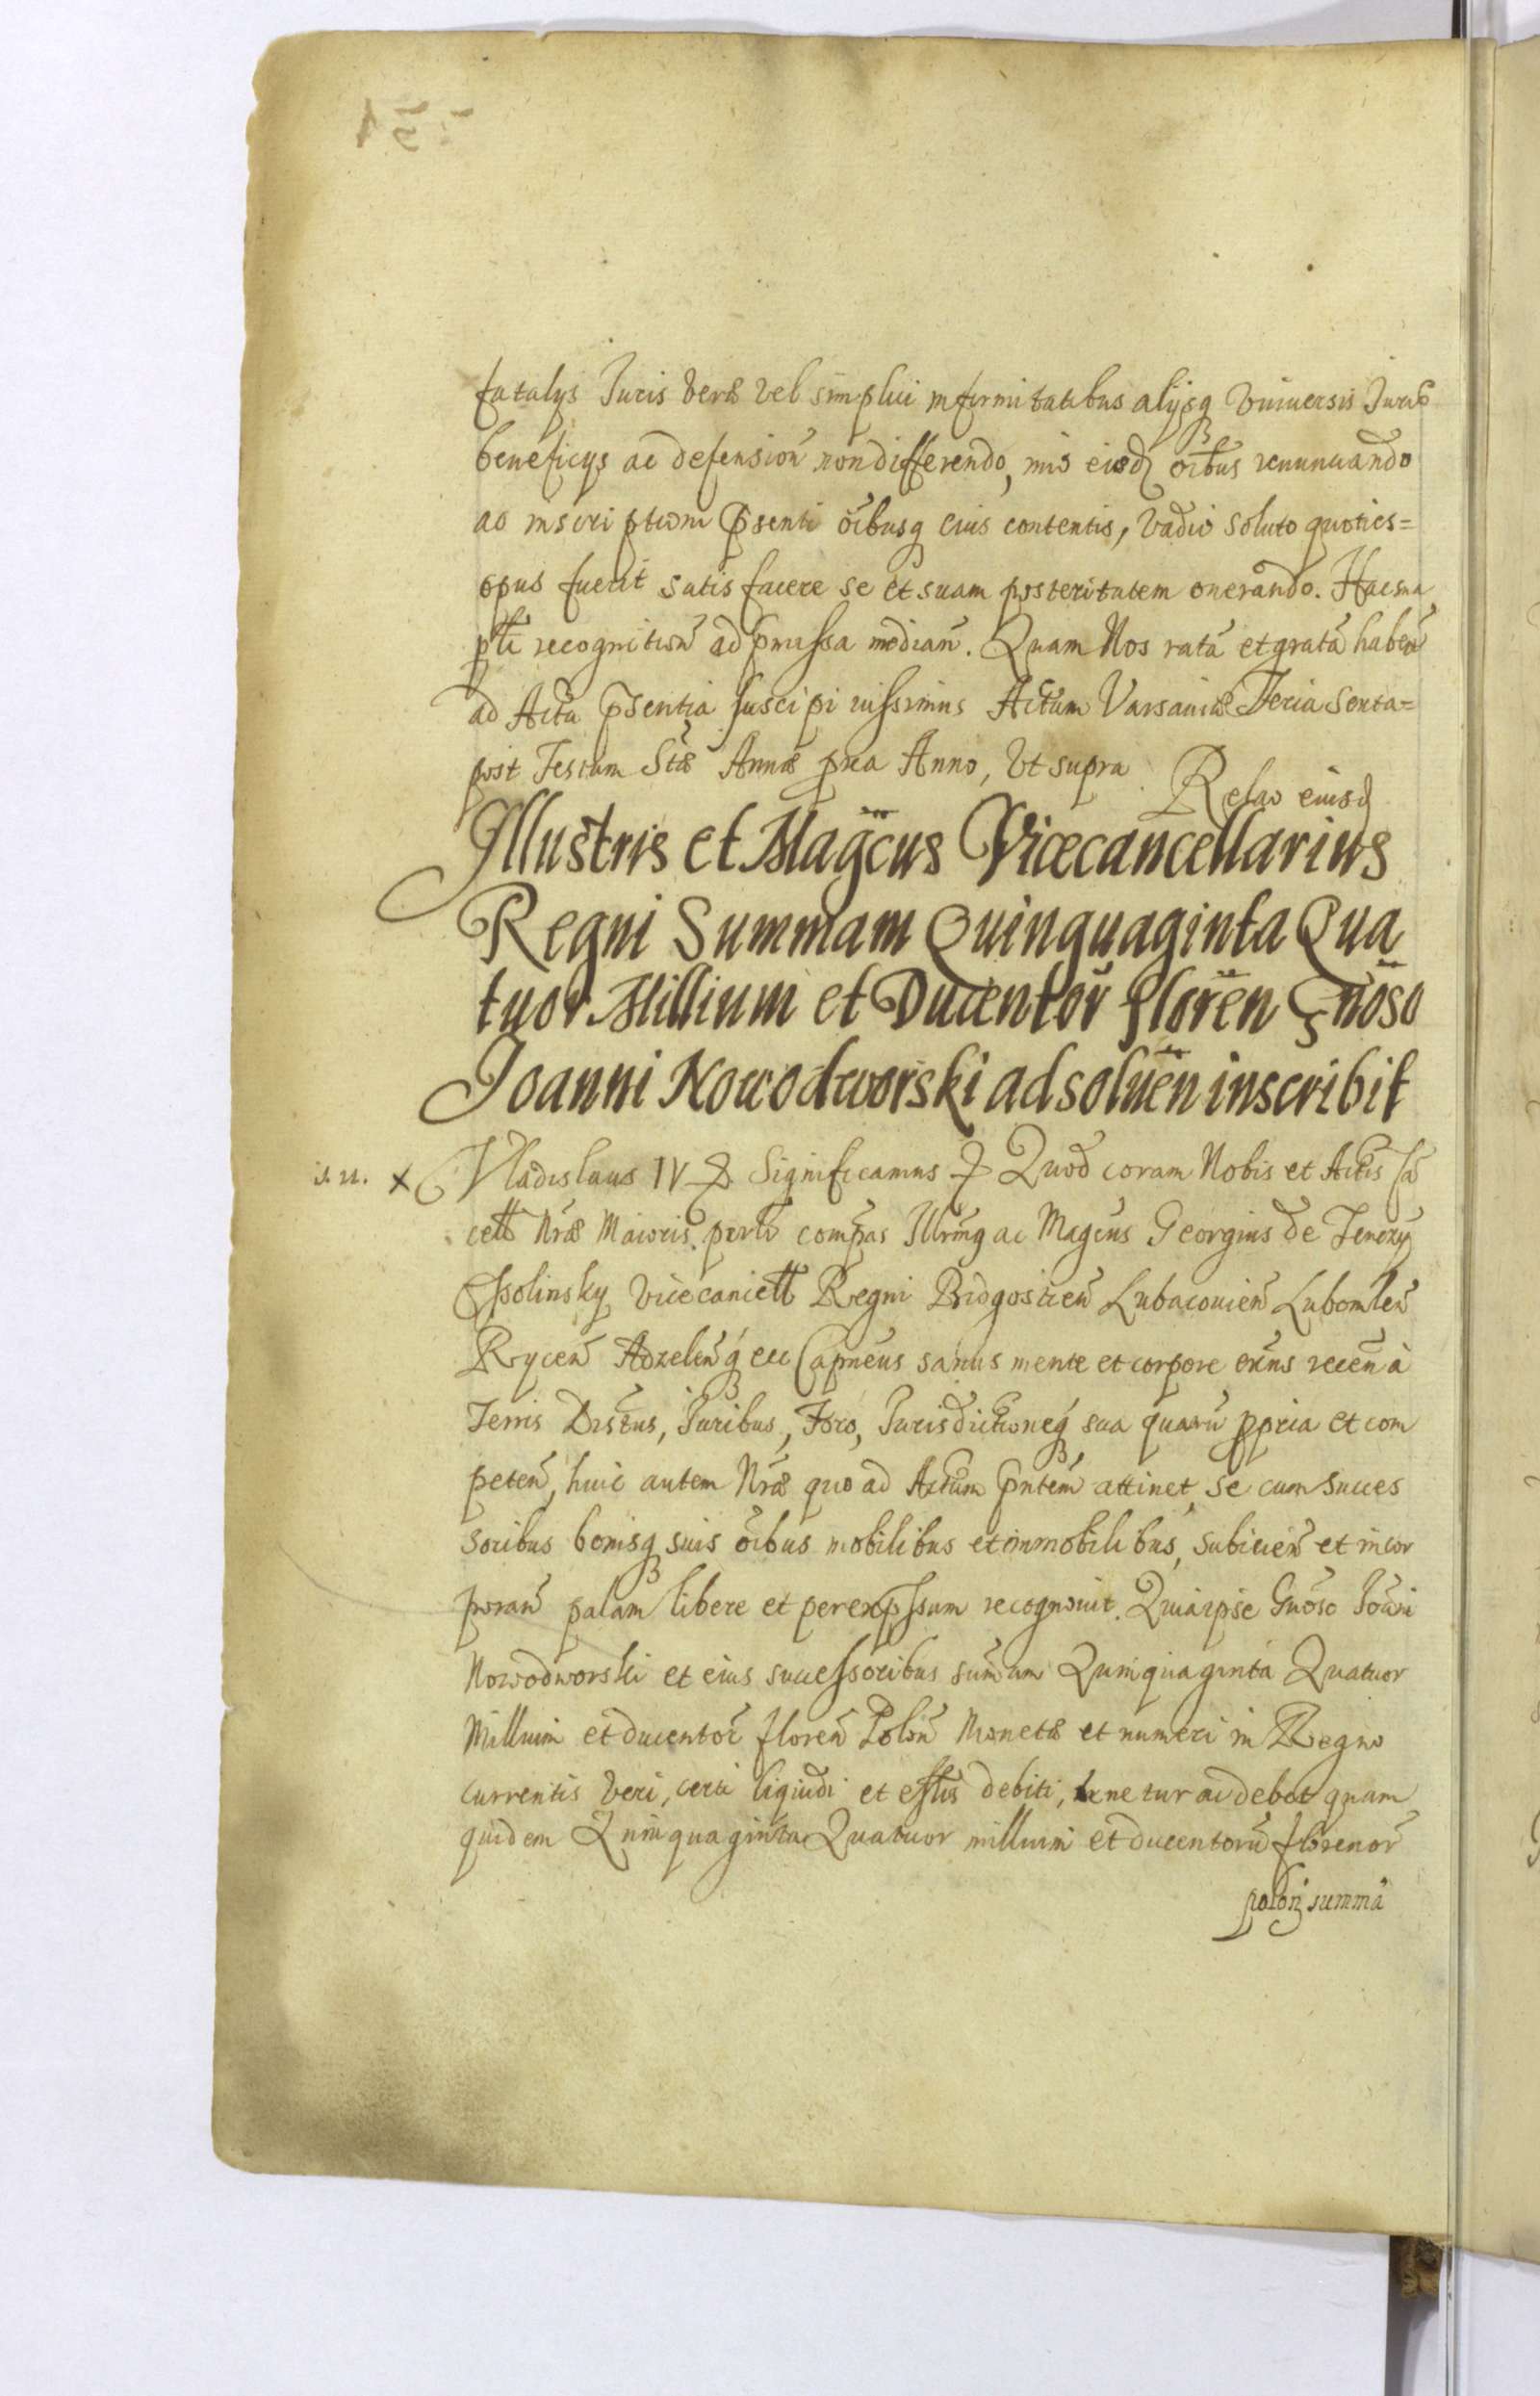 fatalys Juris Veræ vel simplici infirmitatibus alijsq Vniuersis Juris
beneficys ac defensionū non differendo, imo eisdꝫ oībus renunciando
ac inscriptioni pṡenti oībusq eius contentis, Vadio soluto quoties=
opus fuerit satisfacere se et suam posteritatem onerando. Hac sua
ptī recognitionē ad pmissa mediañ. Quam Nos ratā et gratā habeñ
ad Acta psentia suscipi iussimus Actum Varsauiæ Feria Sexta=
post Festum Stæ Annæ pxa Anno, Vt supra
Relao eiusd
Illustris et Magcus Vicecancellarius
Regni Summam Quinquaginta Qua
tuor Millium et Ducentor̄ floren̄ Gnoso
Joanni Nowodworski ad soluen̄ inscribit
Vladislaus IV Significamus Quod coram Nobis et Actis
cell Nræ Maioris psonlr compas Illrmq ac Magcus Georgius de Tenczy
Ossolinsky Vicecancell Regni Bidgostien̄ Lubaconien̄ Lubomlen̄
Rycen̄ Adzelen̄q ecc Capneus sanus mente et corpore exn̄s receñ à
Terris Distus, Juribus, Foro, Jurisdictioneq sua quavū ppria et com
peten̄, huic autem Nræ quo ad Actum pntem attinet, se cum succes
soribus bonisq suis oībus mobilibus et immobilibus, subicien̄ et incor
poran̄ palam libere et per expssum recognouit. Quia ipse Gnōso Joāni
Nowodworski et eius successoribus sumam Quinquaginta Quatuor
Millium et ducentor̄ floren̄ Polon̄ Monetæ et numeri in Regno
currentis Veri, certi liquidi et esslis debiti, tenetur ac debet quam
quidem Quinquaginta Quatuor millium et ducentorū florenor̄
polon̄ summā